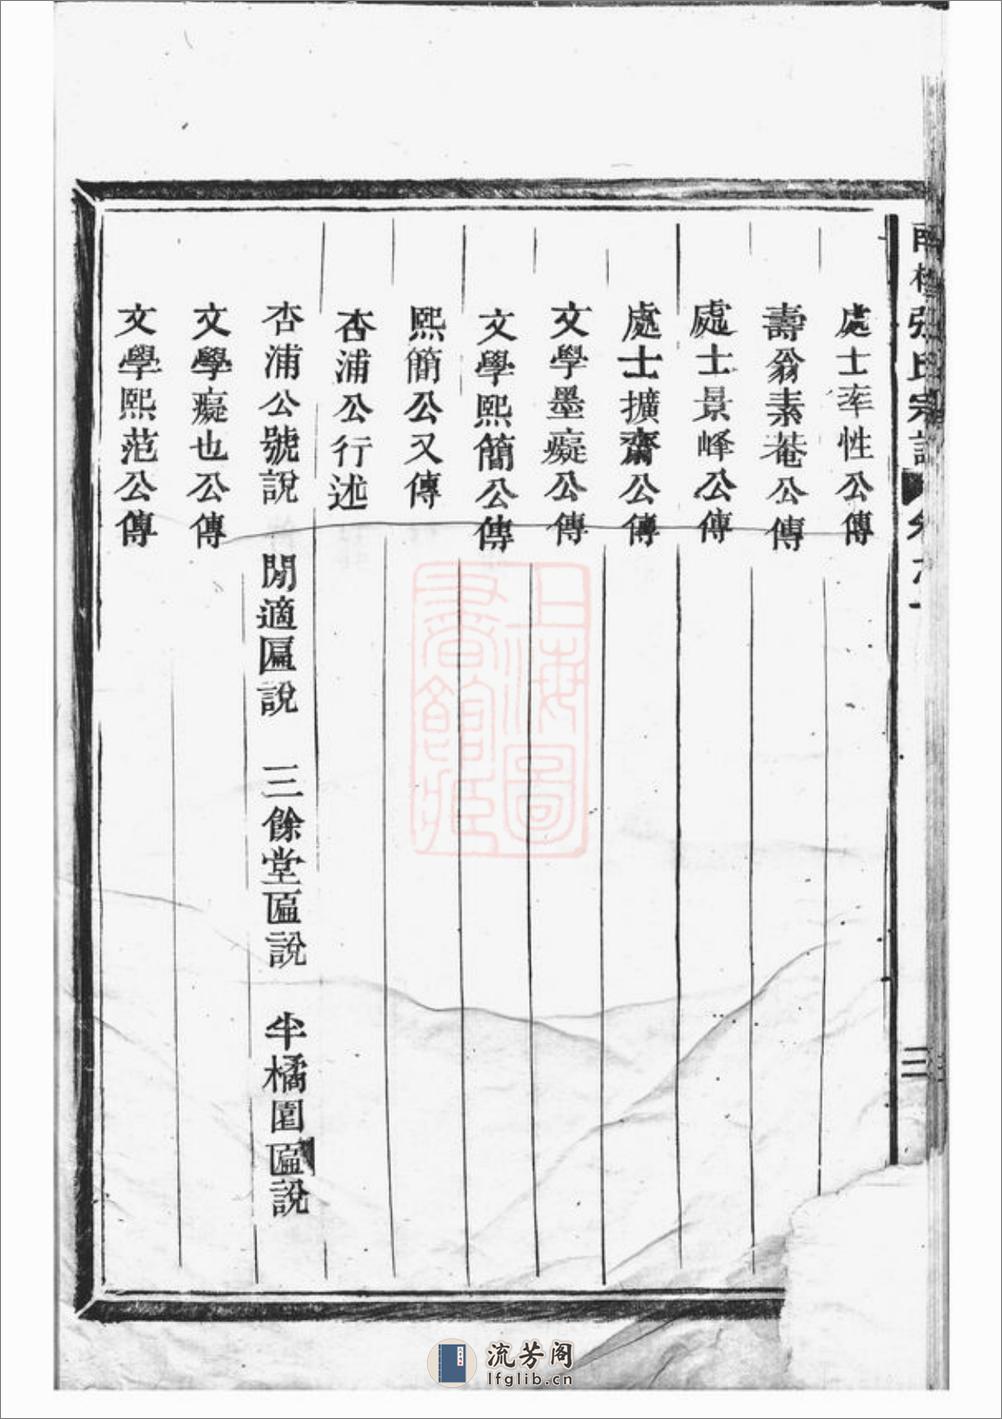 張氏宗譜
三
處士率性公傳
壽翁素菴公傳
處士景峰公傳
處士擴齋公傳
文學墨癡公傳
文學熙簡公傳
熙簡公又傳
杏浦公行述
杏浦公號說 閒適匾說 三餘堂匾說 半橘園匾說
文學癡也公傳
文學熙范公傳
上海圖書館藏
流芳阁
lfglib.cn